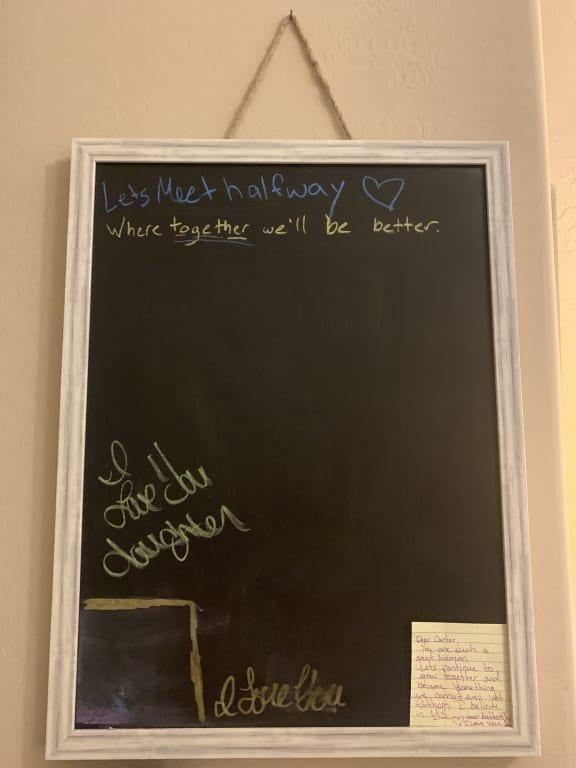 Lets Meet halfway
Where together we'll be better.
I
Love You
daughter
I Love You
Dear Carter,
You are such a
great human.
Lets continue to
grow together and
become something
we cannot even yet
fathom. I believe
in US
I Love You